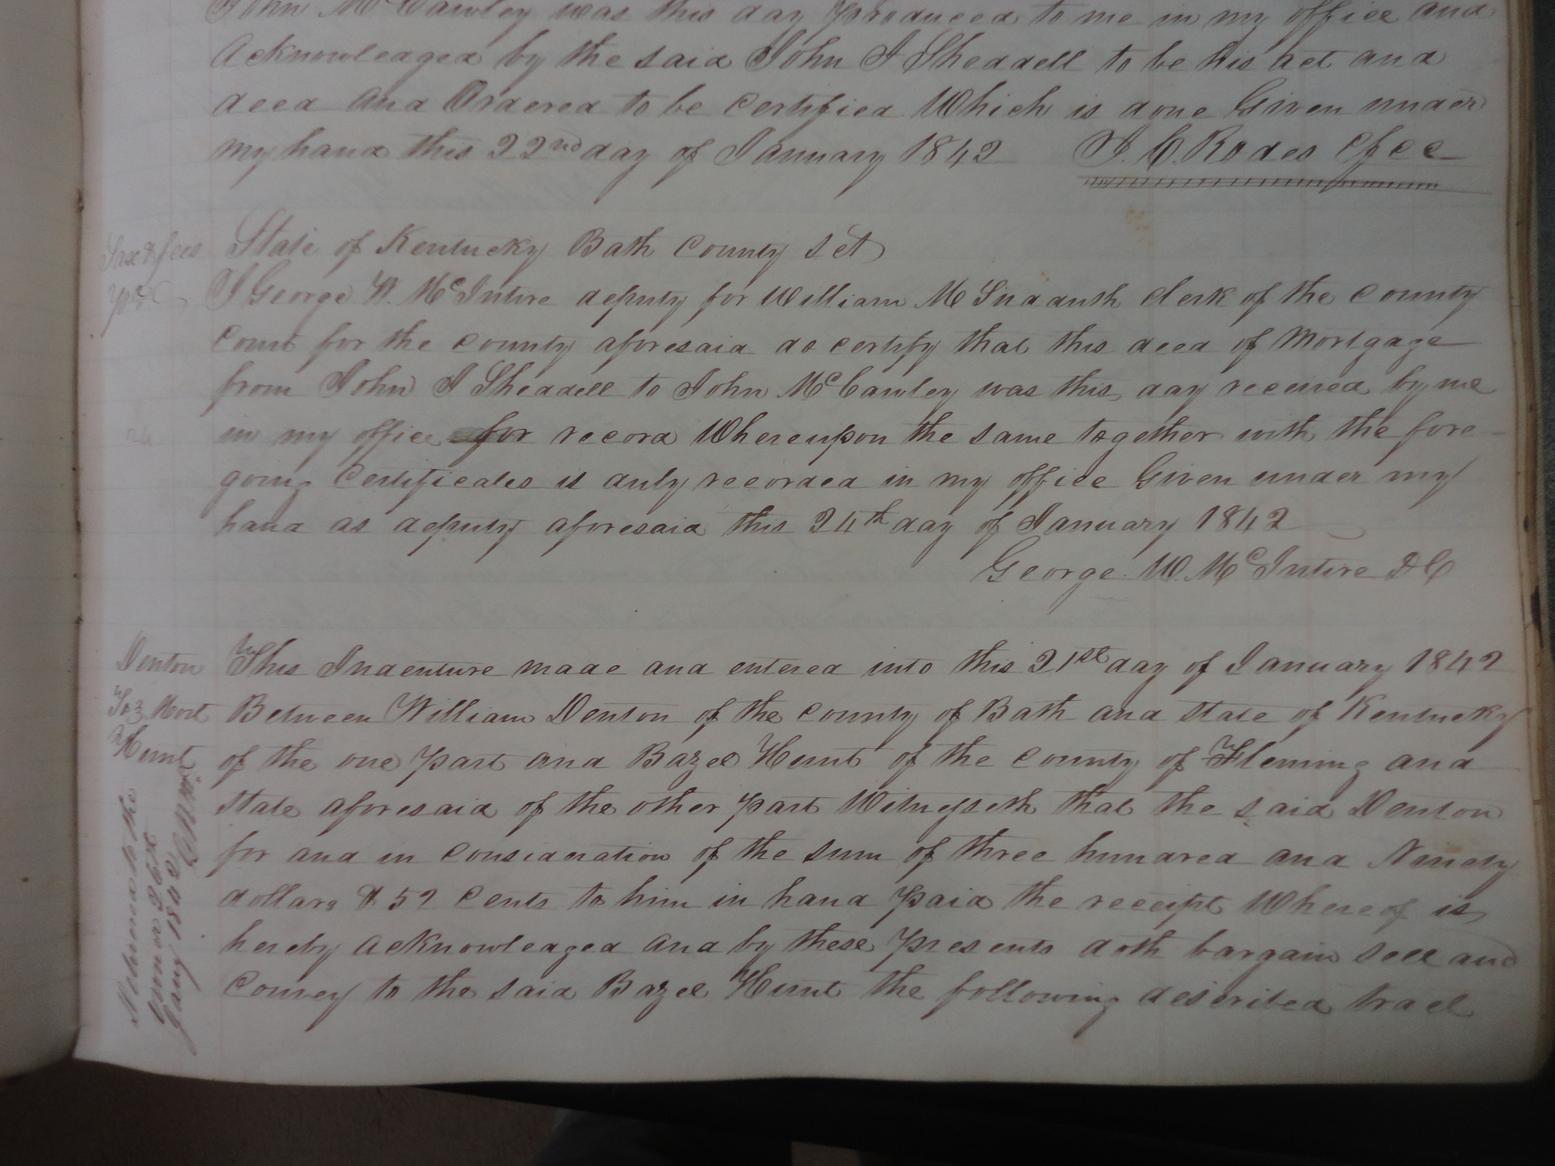 John McCawley was this day produced to me in my office and
Acknowledged by the said John J Sheddell to be his act and
deed and Ordered to be certified Which is done Given under
my hand this 22nd day of January 1842 J. C. Rodes Cfcc
Tax & fees
State of Kentucky Bath County Set
I George W. McIntire deputy for William M Sudduth clerk of the County
Court for the county aforesaid do certify that this deed of Mortgage
from John J Sheddell to John McCawley was this day received by me
in my office for record Whereupon the same together with the fore-
going Certificates is duly recorded in my office Given under my
hand as deputy aforesaid this 24th day of January 1842
George W. McIntire DC
Denton
To } Mort
Hunt
This Indenture made and entered into this 21st day of January 1842
Between William Denton of the County of Bath and state of Kentucky
of the one part and Bazel Hunt of the County of Fleming and
State aforesaid of the other part Witnesseth that the said Denton
for and in consideration of the sum of three hundred and Ninety
dollars & 52 Cents to him in hand paid the receipt Whereof is
hereby acknowledged and by these presents doth bargain sell and
Convey to the said Bazel Hunt the following described tract
Delivered to the
26th
Jany 1842